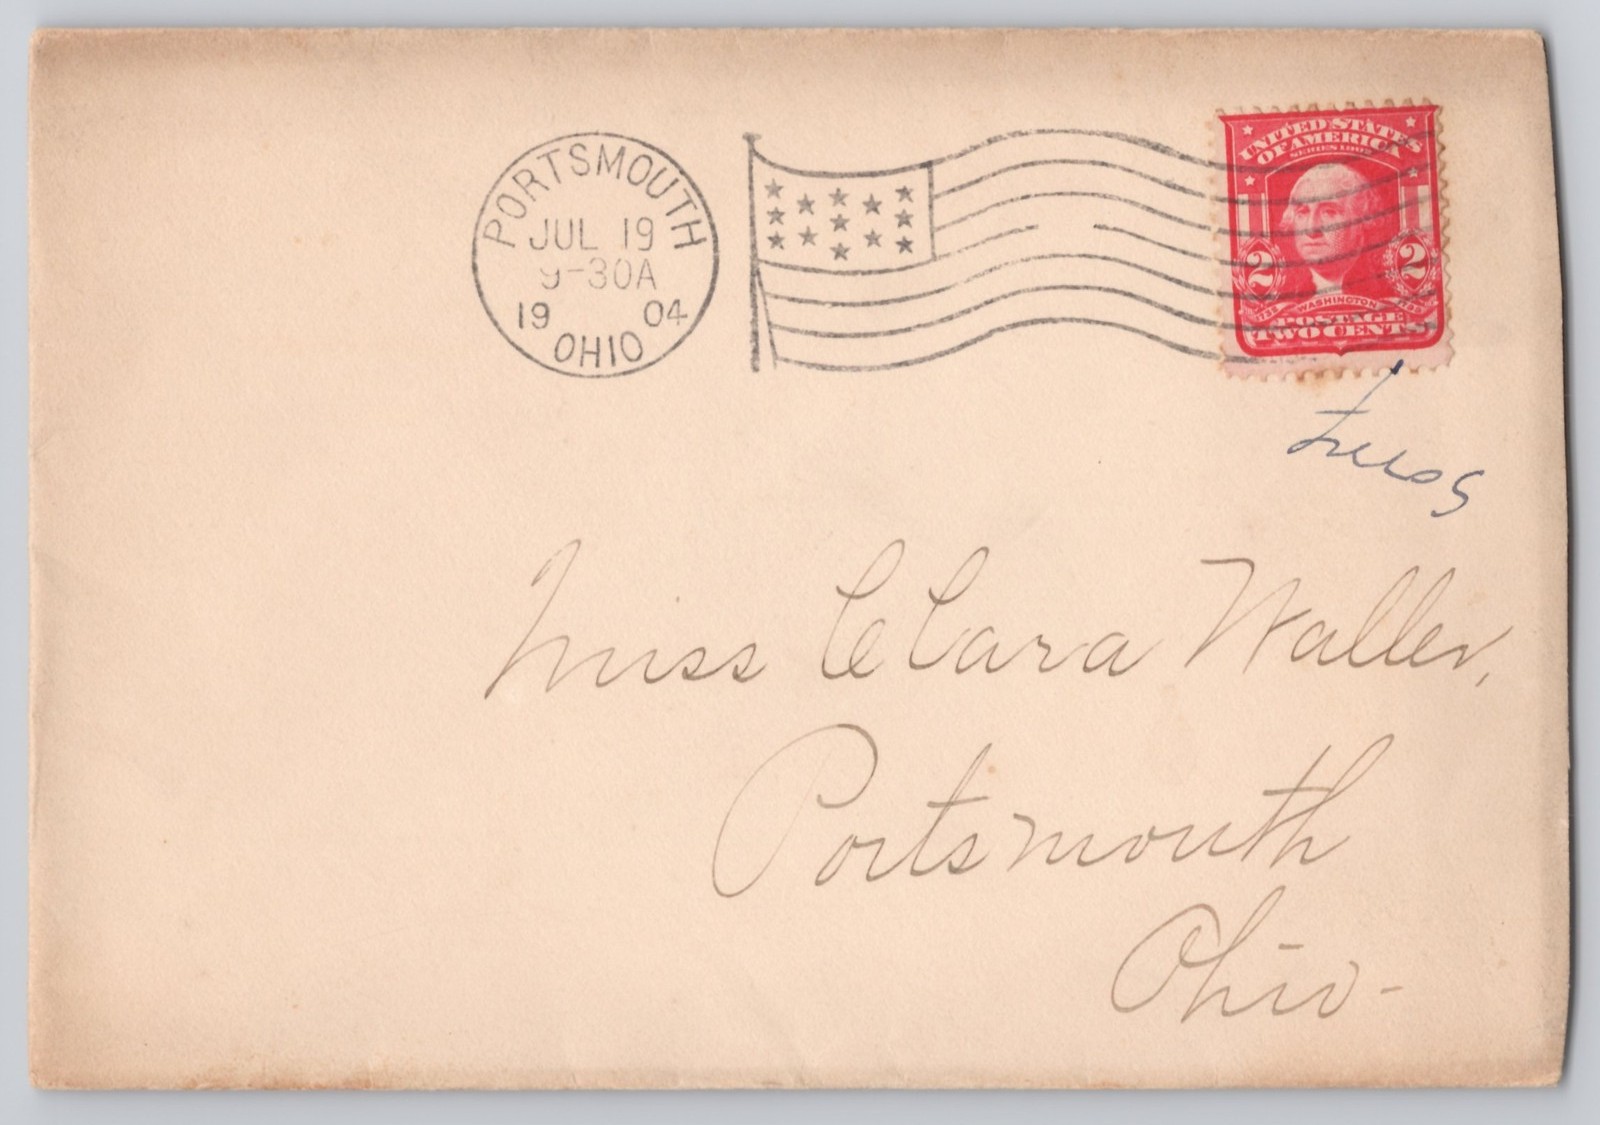 PORTSMOUTH
JUL 19
9-30A
19 04
OHIO
UNITED STATES
OF AMERICA
SERIES 1902
2 2
WASHINGTON
POSTAGE
TWO CENTS
Miss Clara Waller,
Portsmouth
Ohio-